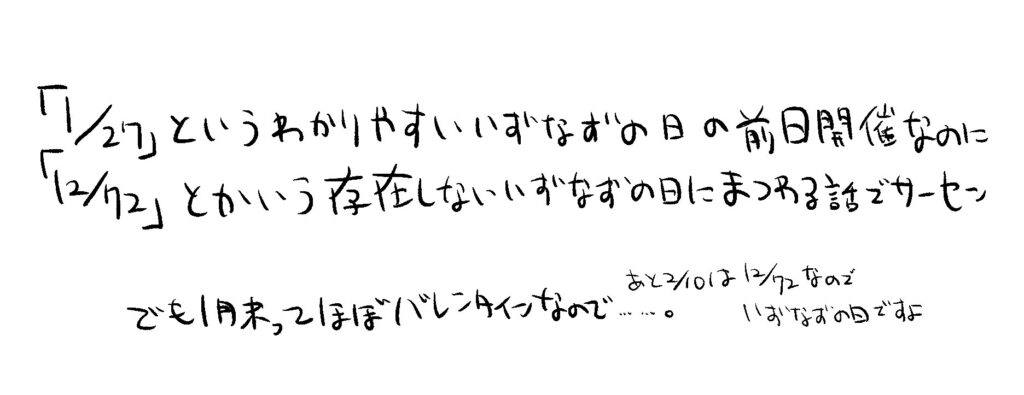 「1/27」というわかりやすいいずなずの日の前日開催なのに
「12/72」とかいう存在しないいずなずの日にまつわる話でサーセン
でも1月末ってほぼバレンタインなので……。
あと2/10は12/72なので
いずなずの日ですよ